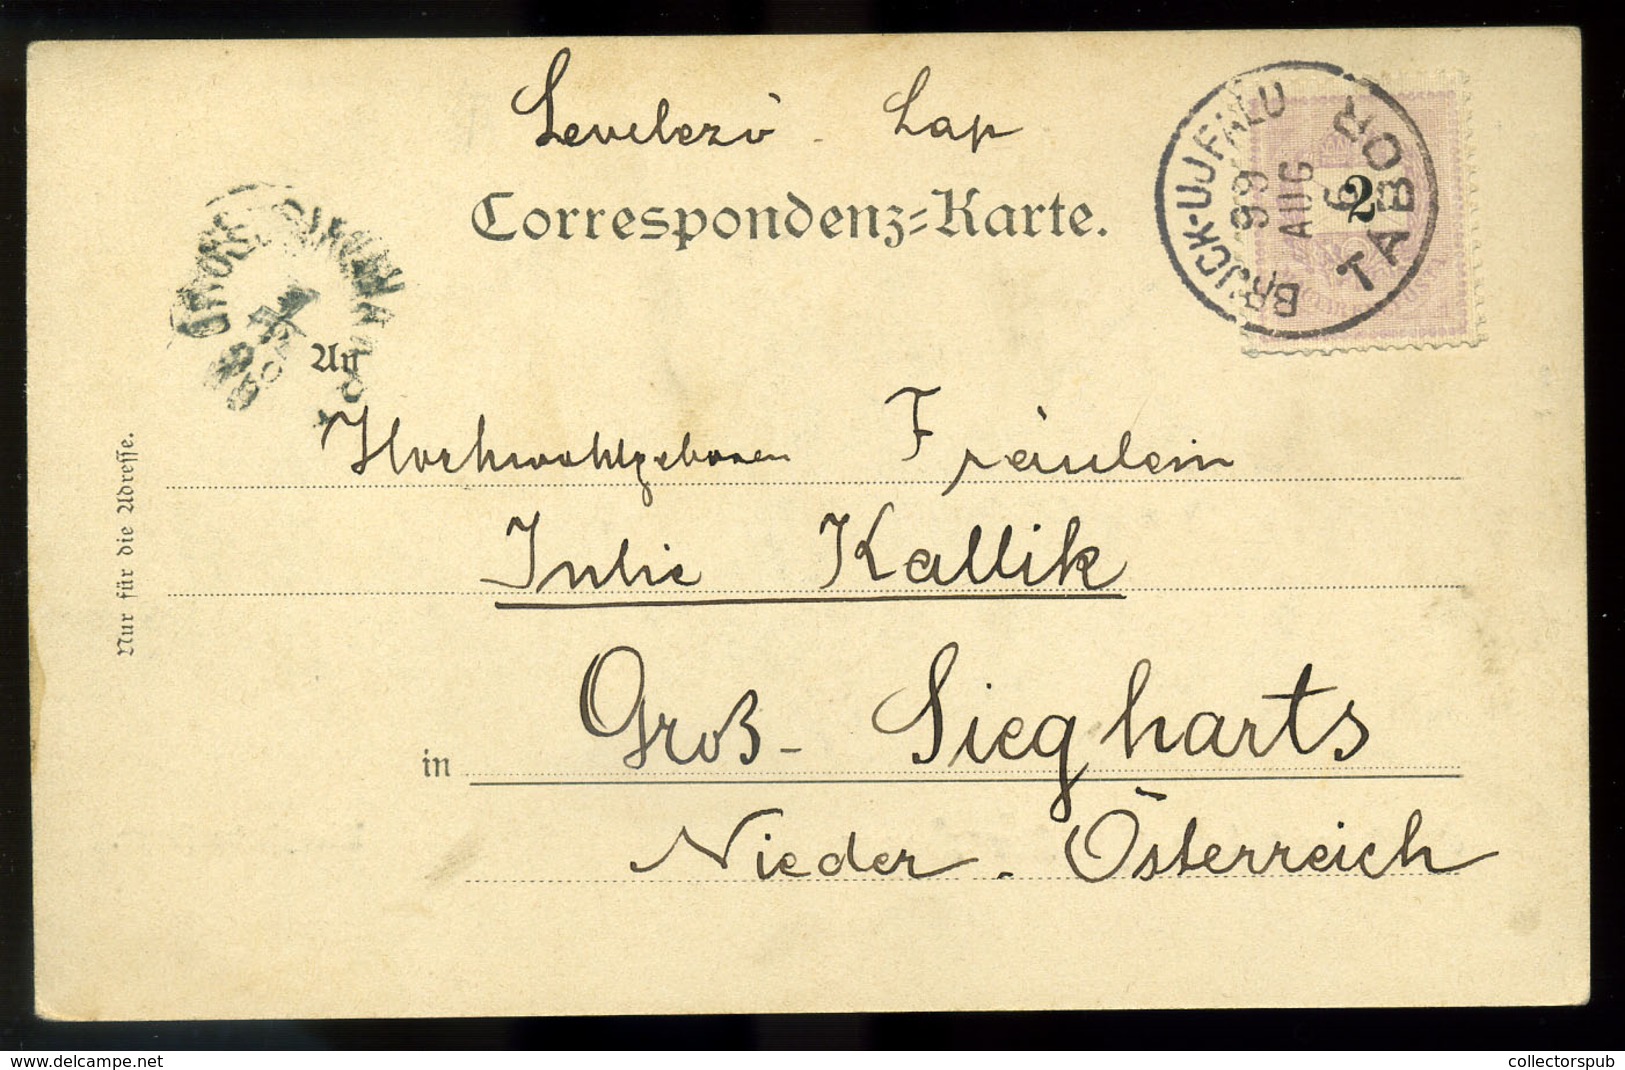 Levelező - Lap
Correspondenz-Karte.
BRUCK-UJFALU
99
AUG
6
TABOR
2
An
Nur für die Adresse.
Hochwohlgeboren Fräulein
Julie Kallik
in Groß-Siegharts
Nieder-Österreich
www.delcampe.net
collectorspub